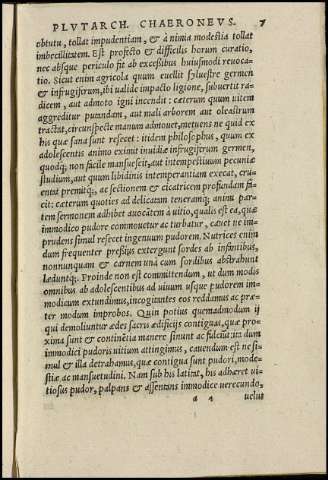 PLVTARCH. CHAERONEVS. 7
obtutu, tollat impudentiam, & à nimia modestia tollat
imbecillitatem. Est profecto & difficilis horum curatio,
nec absque periculo fit ab excessibus huiusmodi reuoca-
tio. Sicut enim agricola quum euellit syluestre germen
& infrugiferum, ibi ualide impacto ligone, subuertit ra-
dicem, aut admoto igni incendit: cæterum quum uitem
aggreditur putandam, aut mali arborem aut oleastrum
tractat, circunspecte manum admouet, metuens ne quid ex
his quæ sana sunt resecet: itidem philosophus, quum ex
adolescentis animo eximit inuidiæ infrugiferum germen,
quodq; non facile mansuescit, aut intempestiuum pecuniæ
studium, aut quum libidinis intemperantiam execat, cru-
entat premitq;, ac sectionem & cicatricem profundam fa-
cit: cæterum quoties ad delicatam teneramq; animi par-
tem sermonem adhibet auocatem à uitio, qualis est ea, quæ
immodico pudore commouetur ac turbatur, cauet ne im-
prudens simul resecet ingenuum pudorem. Nutrices enim
dum frequenter pressius extergunt sordes ab infantibus,
nonnunquam & carnem unà cum sordibus abstrahunt
læduntq;. Proinde non est committendum, ut dum modis
omnibus ab adolescentibus ad uiuum usque pudorem im-
modicum extundimus, incogitantes eos reddamus ac præ-
ter modum improbos. Quin potius quemadmodum ij
qui demoliuntur ædes sacris ædificijs contiguas, quæ pro-
xima sunt & continētia manere sinunt ac fulciūt: ita dum
immodici pudoris uitium attingimus, cauendum est ne si-
mul & illa detrahamus, quæ contigua sunt pudori, mode-
stiæ ac mansuetudini. Nam sub his latitat, his adhæret ui-
tiosus pudor, palpans & assentans immodice uerecundo,
a 4 uelut